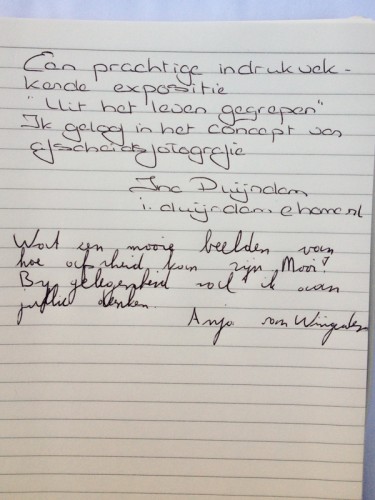 Een prachtige indrukwek-
kende expositie
"Uit het leven gegrepen"
Ik geloof in het concept van
afscheidsfotografie
Ina Duijndam
i.duijndam.ehome.nl
Wat een mooie beelden van
hoe afscheid kan zijn Mooi!
By gelegenheid zal ik aan
jullie denken.
Anja van